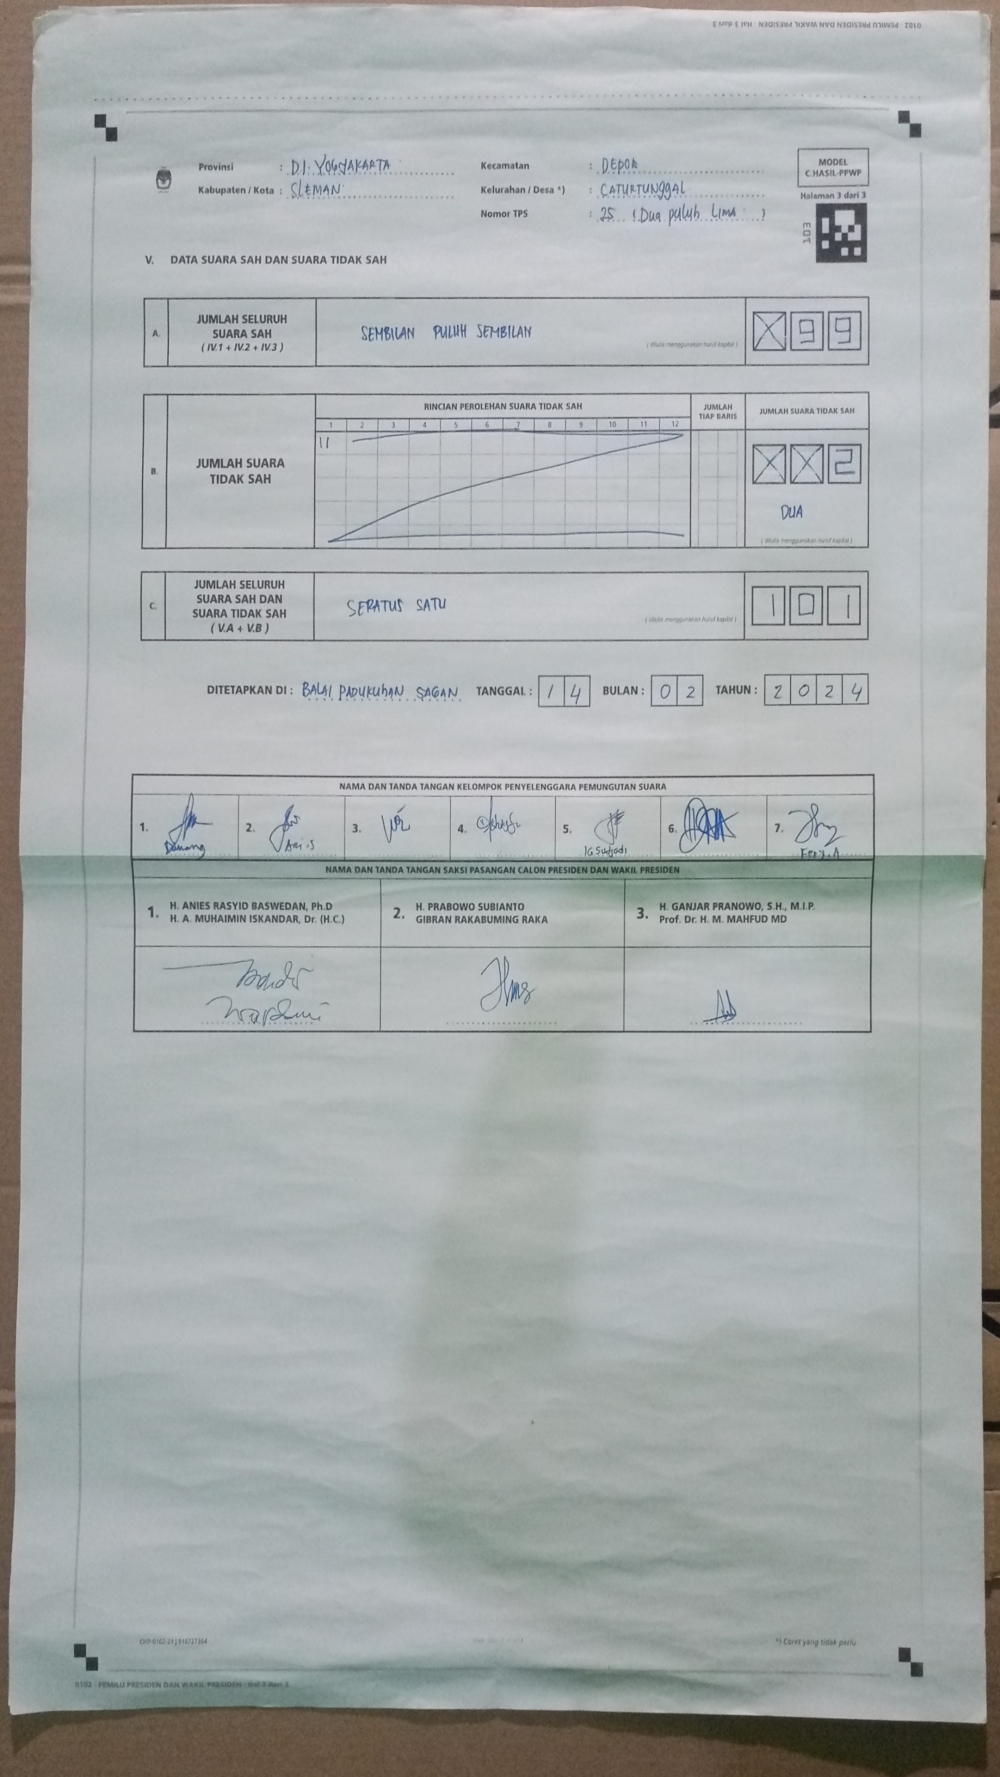 0102 - PEMILU PRESIDEN DAN WAKIL PRESIDEN - Hal 3 dari 3
Provinsi : D.I. YOGYAKARTA
Kabupaten / Kota : SLEMAN
Kecamatan : DEPOK
Kelurahan / Desa *) : CATURTUNGGAL
Nomor TPS : 25 (Dua puluh LIMA)
MODEL
C.HASIL-PPWP
Halaman 3 dari 3
V. DATA SUARA SAH DAN SUARA TIDAK SAH
A.
JUMLAH SELURUH
SUARA SAH
( IV.1 + IV.2 + IV.3 )
SEMBILAN PULUH SEMBILAN
( ditulis menggunakan huruf kapital )
X 9 9
B.
JUMLAH SUARA
TIDAK SAH
RINCIAN PEROLEHAN SUARA TIDAK SAH
1 2 3 4 5 6 7 8 9 10 11 12
II
JUMLAH
TIAP BARIS
JUMLAH SUARA TIDAK SAH
X X 2
DUA
( ditulis menggunakan huruf kapital )
C.
JUMLAH SELURUH
SUARA SAH DAN
SUARA TIDAK SAH
( V.A + V.B )
SERATUS SATU
( ditulis menggunakan huruf kapital )
1 0 1
DITETAPKAN DI : BALAI PADUKUHAN SAGAN TANGGAL : 14 BULAN : 02 TAHUN : 2024
NAMA DAN TANDA TANGAN KELOMPOK PENYELENGGARA PEMUNGUTAN SUARA
1. Danang
2. Aris
3.
4.
5. IG Sudjadi
6.
7. Fery.A
NAMA DAN TANDA TANGAN SAKSI PASANGAN CALON PRESIDEN DAN WAKIL PRESIDEN
1. H. ANIES RASYID BASWEDAN, Ph.D
H. A. MUHAIMIN ISKANDAR, Dr. (H.C.)
2. H. PRABOWO SUBIANTO
GIBRAN RAKABUMING RAKA
3. H. GANJAR PRANOWO, S.H., M.I.P.
Prof. Dr. H. M. MAHFUD MD
*) Coret yang tidak perlu
0102 - PEMILU PRESIDEN DAN WAKIL PRESIDEN - Hal 3 dari 3